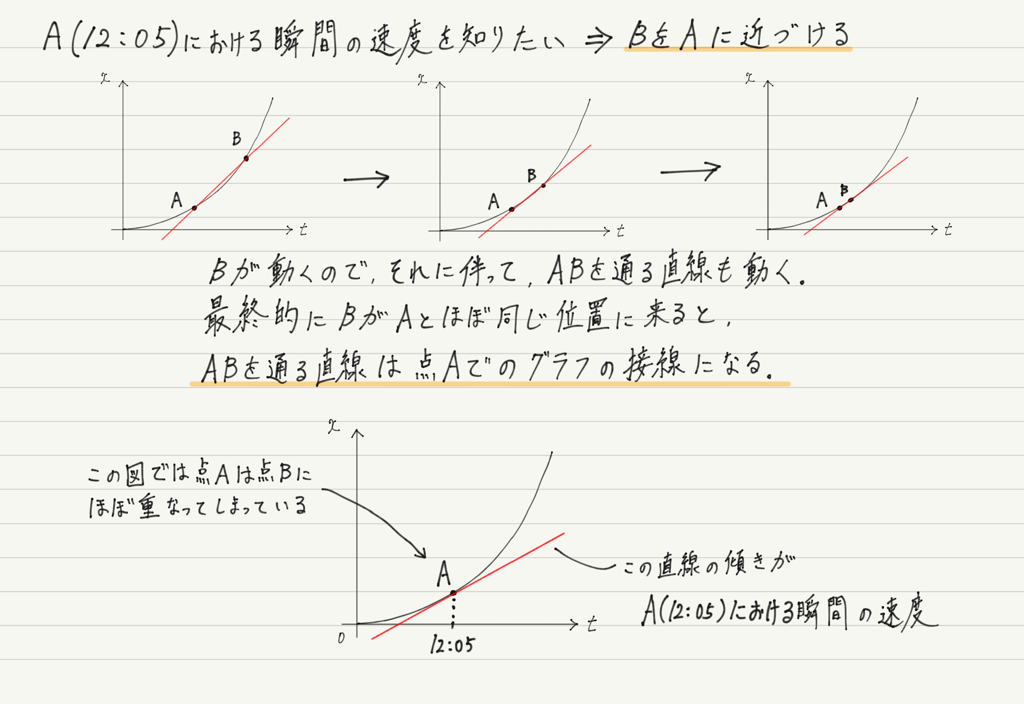 A(12:05)における瞬間の速度を知りたい ⇒ BをAに近づける
x
B
A
t
x
B
A
t
x
B
A
t
Bが動くので，それに伴って，ABを通る直線も動く．
最終的にBがAとほぼ同じ位置に来ると，
ABを通る直線は点Aでのグラフの接線になる．
x
この図では点Aは点Bに
ほぼ重なってしまっている
A
この直線の傾きが
A(12:05)における瞬間の速度
t
0
12:05